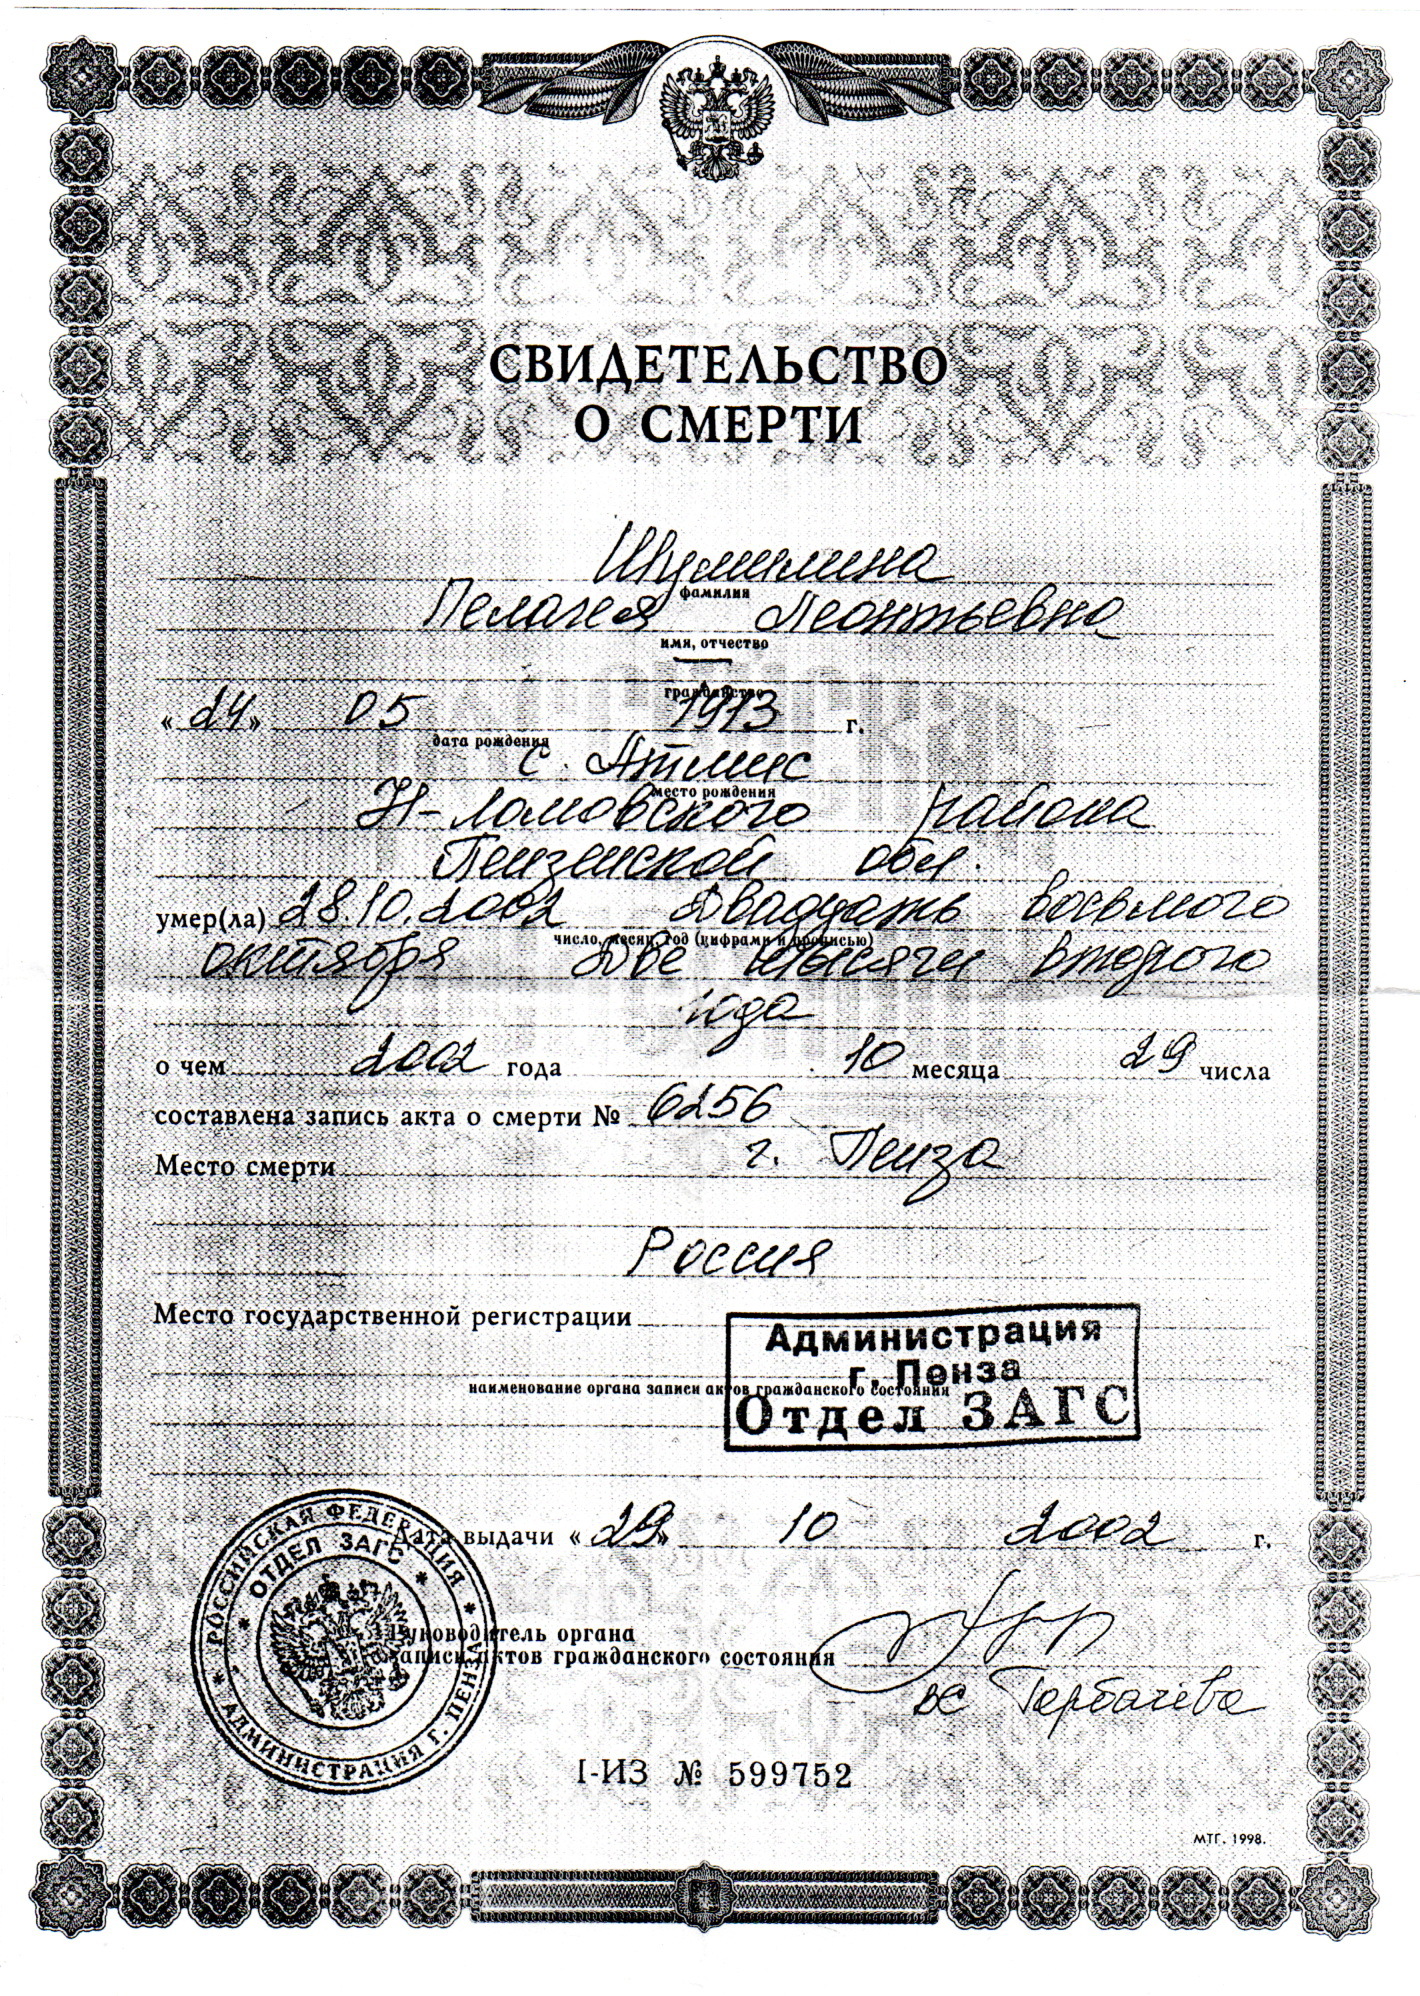 СВИДЕТЕЛЬСТВО
О СМЕРТИ
Шумилина
фамилия
Пелагея Леонтьевна
имя, отчество
—
гражданство
« 24 » 05 1913 г.
дата рождения
с. Атмис
место рождения
Н-Ломовского района
Пензенской обл.
умер(ла) 28.10.2002 Двадцать восьмого
число, месяц, год (цифрами и прописью)
октября Две тысячи второго
года
о чем 2002 года 10 месяца 29 числа
составлена запись акта о смерти № 6256
Место смерти г. Пенза
Россия
Место государственной регистрации
Администрация
г. Пенза
наименование органа записи актов гражданского состояния
Отдел ЗАГС
Дата выдачи « 29 » 10 2002 г.
РОССИЙСКАЯ ФЕДЕРАЦИЯ
ОТДЕЛ ЗАГС
АДМИНИСТРАЦИЯ Г. ПЕНЗА
Руководитель органа
записи актов гражданского состояния
ВС Горбачева
I-ИЗ № 599752
МТГ. 1998.